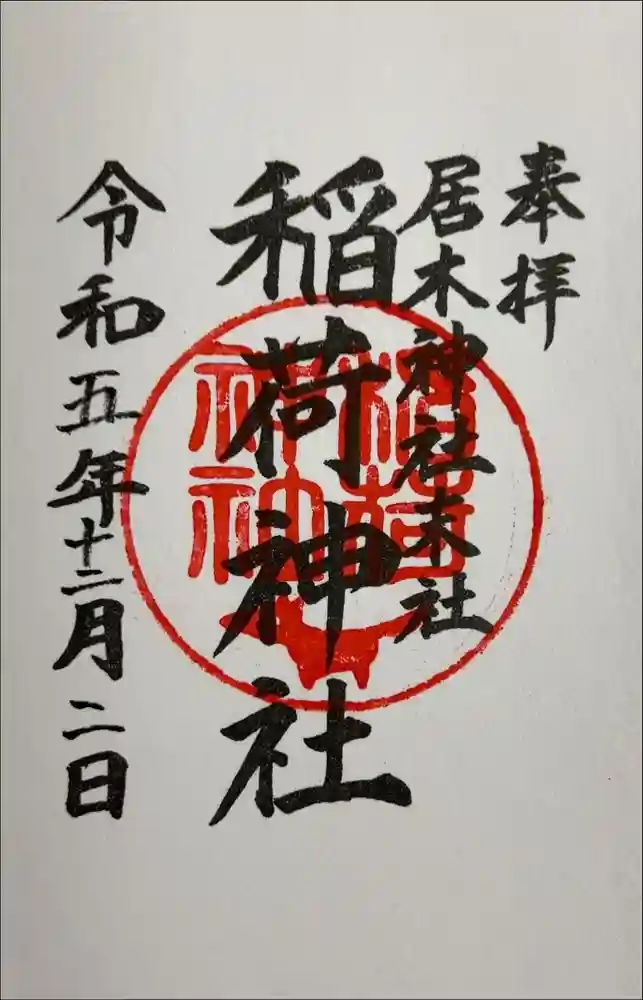 奉拝
居木神社末社
稲荷神社
稲荷神社
令和五年十二月二日